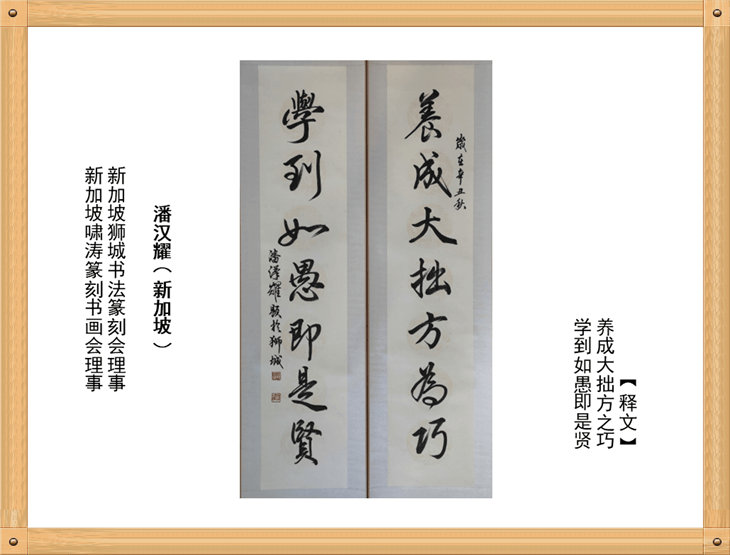 【释文】
养成大拙方之巧
学到如愚即是贤
養成大拙方為巧
歲在辛丑秋
學到如愚即是賢
潘漢耀題於獅城
潘汉耀（新加坡）
新加坡狮城书法篆刻会理事
新加坡啸涛篆刻书画会理事